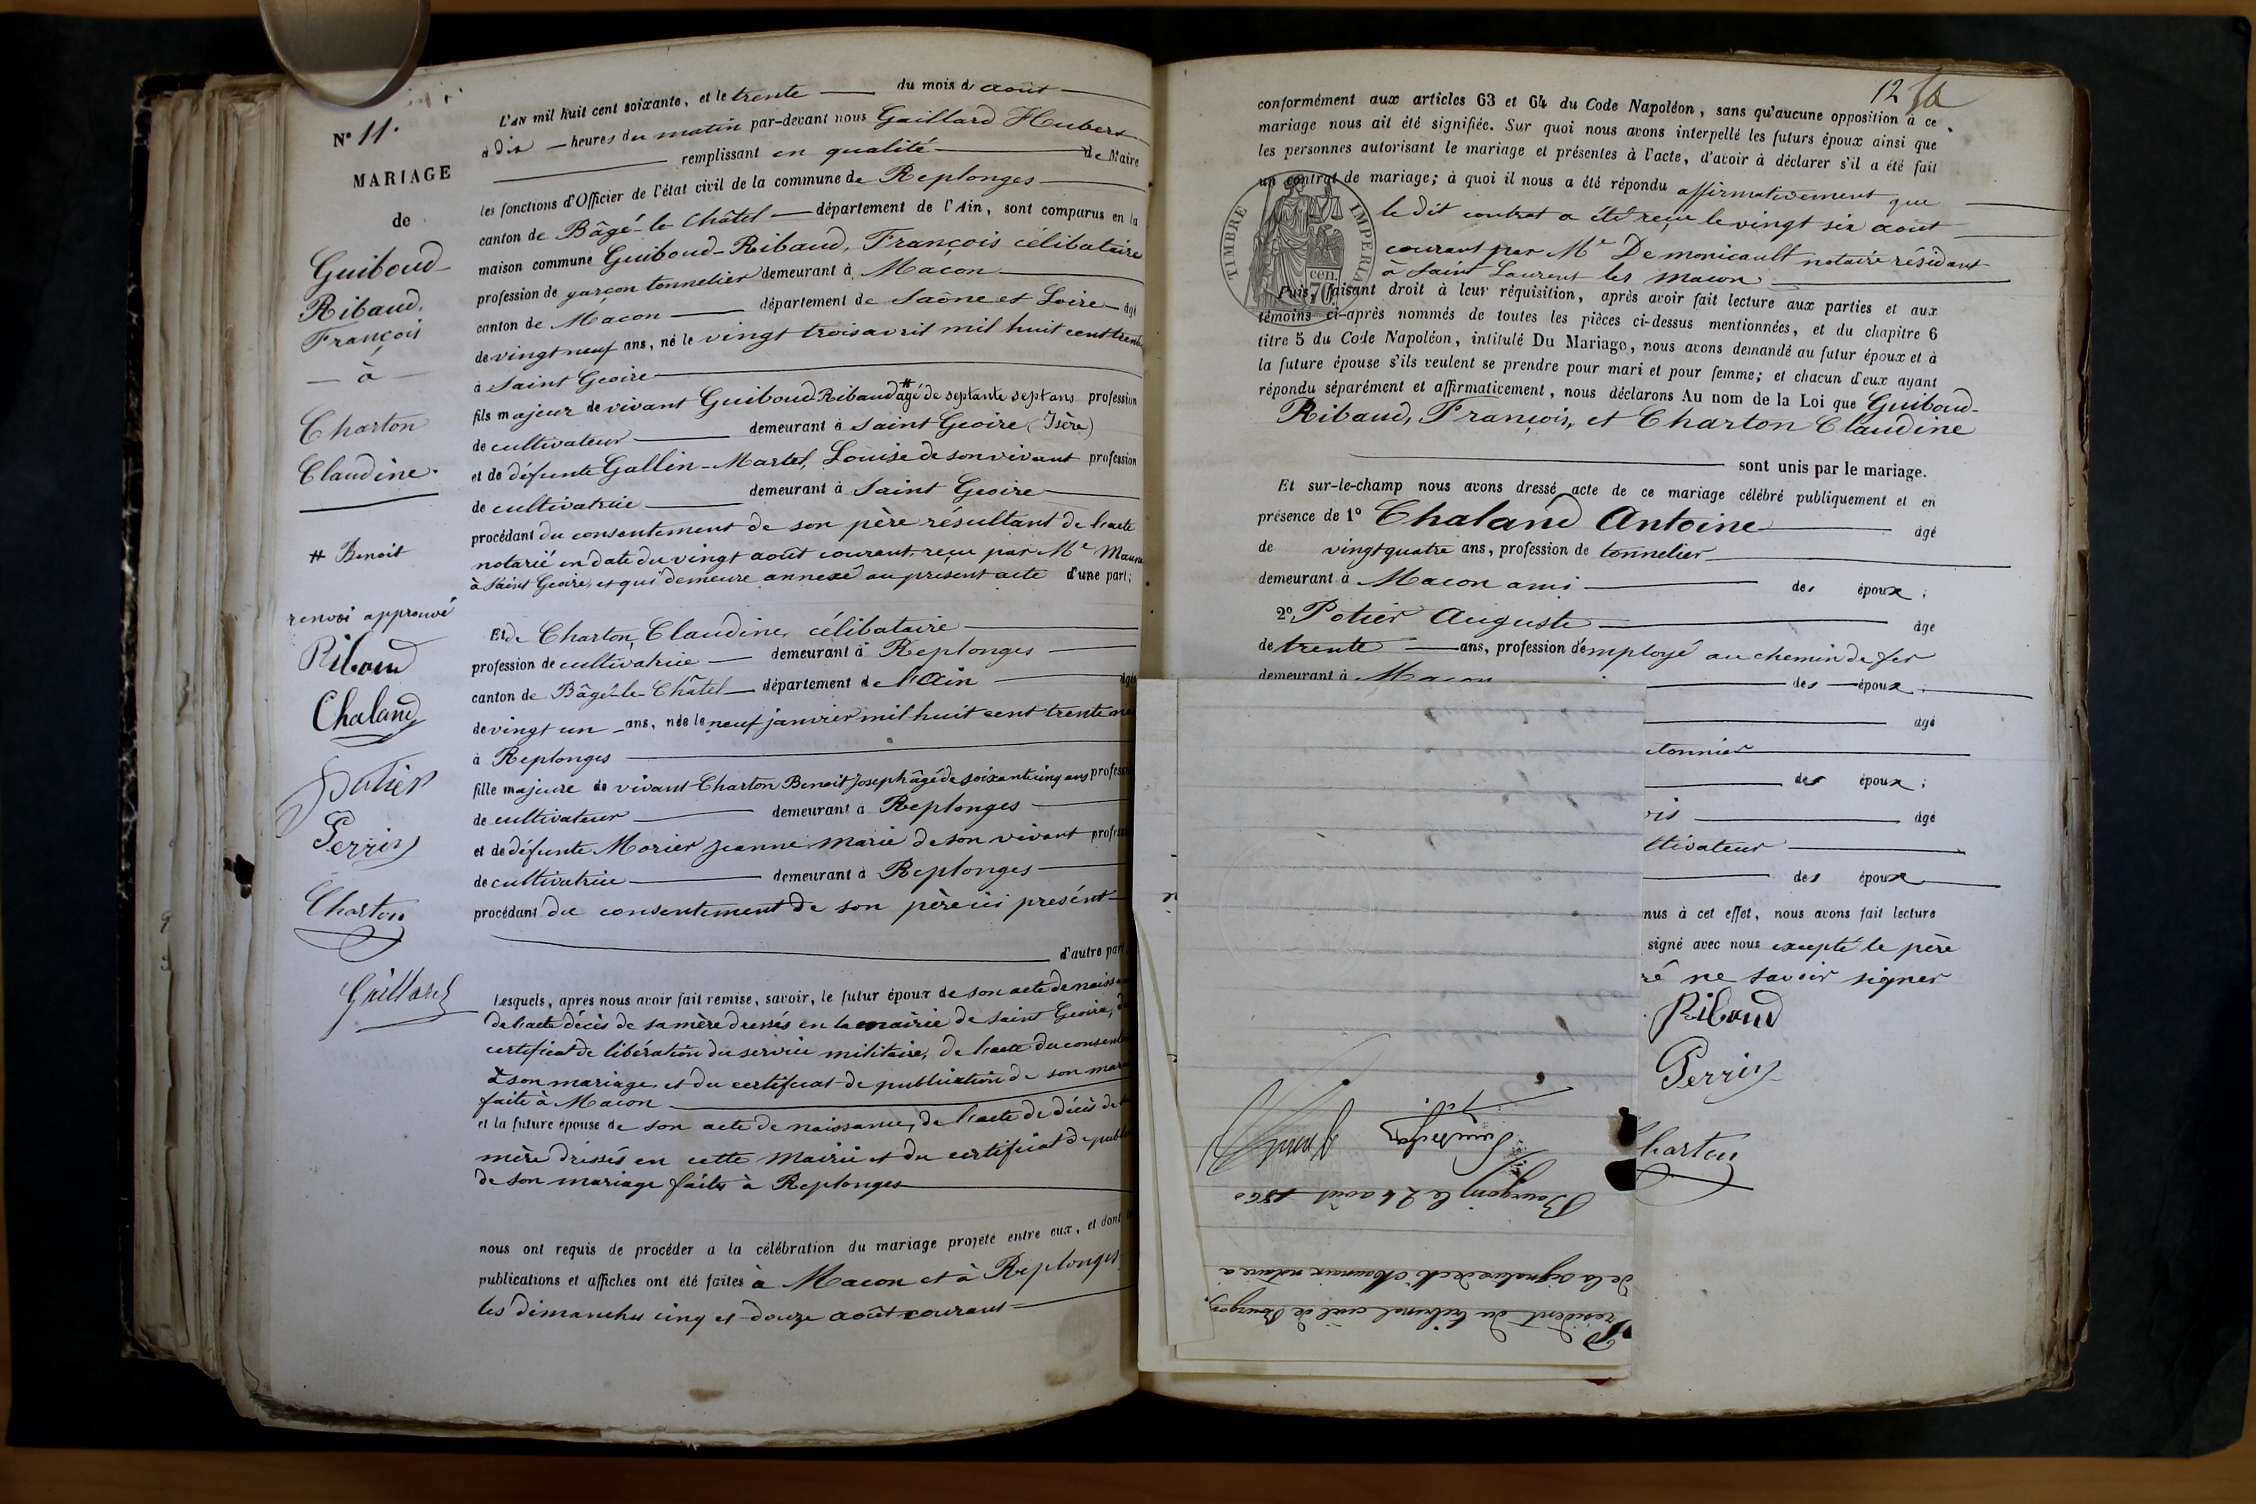 N° 11.
MARIAGE
de
Guiboud-
Ribaud,
François
— à —
Charton
Claudine.
# Benoit
renvoi approuvé
Ribaud
Chaland
Potier
Perrin
Charton
Gaillard
L'AN mil huit cent soixante, et le trente du mois d août
à dix heures du matin par-devant nous Gaillard Hubert
remplissant en qualité de Maire
les fonctions d'Officier de l'état civil de la commune de Replonges
canton de Bâgé-le-Châtel département de l'Ain, sont comparus en la
maison commune Guiboud-Ribaud, François célibataire
profession de garçon tonnelier demeurant à Macon
canton de Macon département de Saône et Loire âgé
de vingt neuf ans, né le vingt trois avril mil huit cent trente
à Saint Geoire
fils majeur de vivant Guiboud Ribaud # âgé de septante sept ans profession
de cultivateur demeurant à Saint Geoire (Isère)
et de défunte Gallin-Martel, Louise de son vivant profession
de cultivatrice demeurant à Saint Geoire
procédant du consentement de son père résultant de l'acte
notarié en date du vingt août courant reçu par Me
à Saint Geoire, et qui demeure annexé au présent acte d'une part;
Et de Charton, Claudine, célibataire
profession de cultivatrice demeurant à Replonges
canton de Bâgé-le-Châtel département de l'Ain âgée
de vingt un ans, née le neuf janvier mil huit cent trente
à Replonges
fille majeure de vivant Charton Benoit Joseph âgé de soixante cinq ans profession
de cultivateur demeurant à Replonges
et de défunte Morier Jeanne Marie de son vivant profession
de cultivatrice demeurant à Replonges
procédant du consentement de son père ici présent
d'autre part
Lesquels, après nous avoir fait remise, savoir, le futur époux de son acte de
de l'acte décès de sa mère dressés en la mairie de Saint Geoire,
certificat de libération du service militaire, de l'acte du
à son mariage et du certificat de publication de son
faite à Macon
et la future épouse de son acte de naissance, de l'acte de décès de
mère dressés en cette Mairie et du certificat de
de son mariage faite à Replonges
nous ont requis de procéder à la célébration du mariage projeté entre eux, et dont
publications et affiches ont été faites à Macon et à Replonges
les dimanches cinq et douze août courant
12
conformément aux articles 63 et 64 du Code Napoléon, sans qu'aucune opposition à ce
mariage nous ait été signifiée. Sur quoi nous avons interpellé les futurs époux ainsi que
les personnes autorisant le mariage et présentes à l'acte, d'avoir à déclarer s'il a été fait
un contrat de mariage; à quoi il nous a été répondu affirmativement que
le dit contrat a été reçu le vingt six août
courant par Me De monicault notaire résidant
à Saint Laurent les Macon
TIMBRE IMPERIAL
cen. 70
Puis, faisant droit à leur réquisition, après avoir fait lecture aux parties et aux
témoins ci-après nommés de toutes les pièces ci-dessus mentionnées, et du chapitre 6
titre 5 du Code Napoléon, intitulé Du Mariage, nous avons demandé au futur époux et à
la future épouse s'ils veulent se prendre pour mari et pour femme; et chacun d'eux ayant
répondu séparément et affirmativement, nous déclarons Au nom de la Loi que Guiboud-
Ribaud, François, et Charton Claudine
sont unis par le mariage.
Et sur-le-champ nous avons dressé acte de ce mariage célébré publiquement et en
présence de 1° Chaland Antoine âgé
de vingt quatre ans, profession de tonnelier
demeurant à Macon ami des époux;
2° Potier Auguste âgé
de trente ans, profession d'employé au chemin de fer
demeurant à Macon des époux;
âgé
tonnier
des époux;
ois âgé
ltivateur
des époux
nus à cet effet, nous avons fait lecture
signé avec nous excepté le père
ré ne savoir signer
Ribaud
Perrin
harton
Président du tribunal civil de Bourgoin,
de la signature de Me notaire à
Bourgoin le 24 août 1860